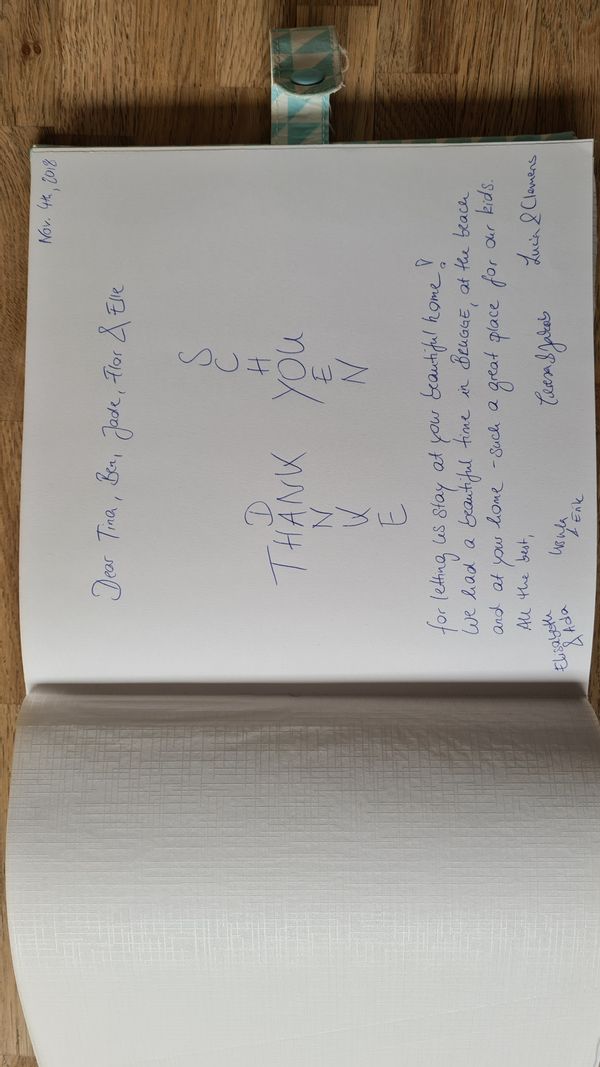 Nov. 4th, 2018
Dear Tina, Ben, Jade, Flor & Elle
S
C
D H
THANK YOU
N E
K N
E
for letting us stay at your beautiful home!
We had a beautiful time in BRUGGE, at the beach
and at your home - such a great place for our kids.
All the best,
Elisabeth
& Ada
Ursula
& Erik
& Jakob
Lucia & Clemens